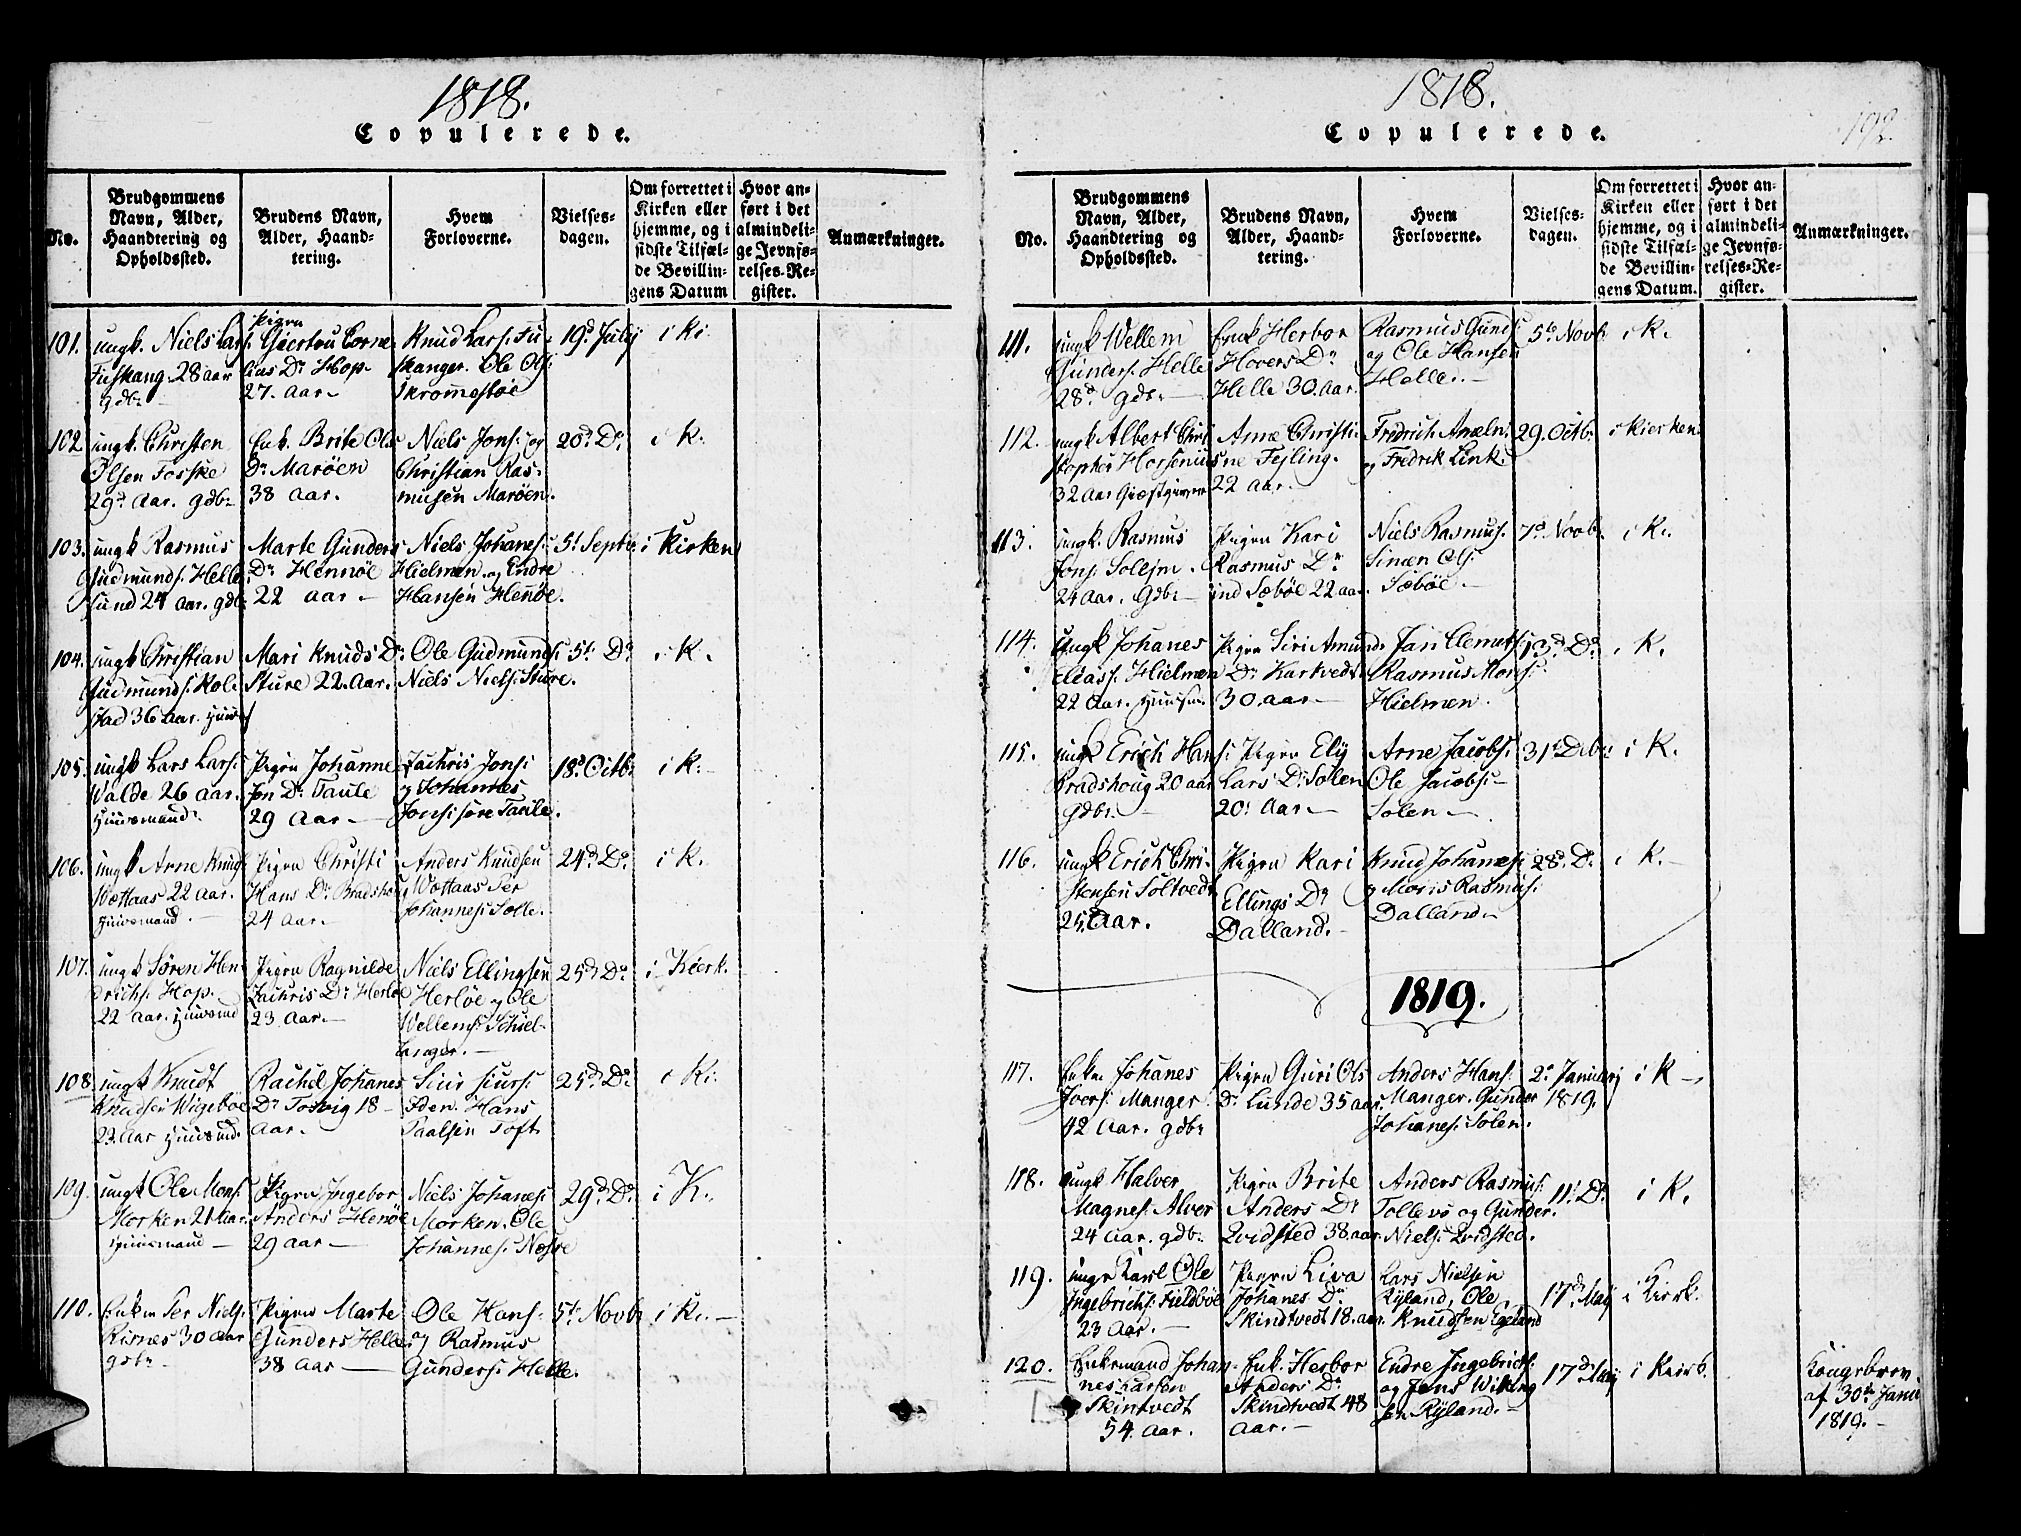 1818.
Copulerede.
No.
Brudgommens
Navn, Alder,
Haandtering og
Opholdssted.
Brudens Navn,
Alder, Haand-
tering.
Hvem
Forloverne.
Vielses-
dagen.
Om forrettet i
Kirken eller
hjemme, og i
sidste Tilfæl-
de Bevillin-
gens Datum
Hvor an-
ført i det
almindeli-
ge Jevnfø-
relses-Re-
gister.
Anmærkninger.
101.
ungk. Niels Lars:
28 aar
gdbr
Pigen
Giertru Corne
lias Dr Hop
27. Aar
Knud Lars. Fu-
skanger. Ole Ols:
Skromestøe
19d July
i K:
102
ungk. Christen
Olsen Foske
29d Aar. gdbr
Enk. Brite Ols
Dr Marøen
38 aar.
Niels Jons: og
Christian Ras-
musen Marøen.
20d Do
i K:
103.
ungk Rasmus
Gudmunds. Helle
sund 24 aar. gdbr
Marte Gunders
Dr Hennøe
22 aar
Niels Johanes:
Hielmen. og Endre
Hansen Henøe.
5t Septbr
i Kirken
104.
ungk Christian
Gudmunds. Hol-
stad 36 Aar.
Mari Knuds Dr
Sture 22. Aar.
Ole Gudmunds:
Niels Niels: Sture.
5t Do
i K.
105.
ungk Lars Lars:
Walde 26 aar.
Huusmand.
Pigen Johanne
Jon Dr Taule
29 Aar
Zachris Jons:
og Johannes
Jons: søre Taule.
18d Octbr
i K:
106.
ungk Arne Knuds
Wottaas 22 Aar.
Huusmand.
Pigen Christi
Hans Dr Bradshoug
24 aar.
Anders Knudsen
Wottaas Per
Johannes: Solle.
24d Do
i K.
107.
ungk Søren Hen
drichs. Hop.
22 aar. Huusmd
Pigen Ragnilde
Zachris Dr Herløe
23 Aar.
Niels Ellingsen
Herløe og Ole
Wellems: Skiel-
langer.
25d Do
i Kierk.
108
ungk Knudt
Knudsen Wigebøe
22 Aar Huusmd.
Rachel Johanes
Dr Toswig 18
Aar.
Siur Siurs:
Iden. Hans
Paalsen Toft
25d Do
i K:
109.
ungk Ole Mons:
Morken 21 Aar.
Huusmand
Pigen Ingebor
Anders Henøe
29 aar
Niels Johanes:
Morken. Ole
Johannes: Nesse
29d Do
i K.
110.
Enkm Per Niels.
Risnes 30 Aar
gdbr
Pigen Marte
Gunders Helle
38 Aar
Ole Hans:
og Rasmus
Gunders: Helle.
5t Novbr
i K.
1818.
192.
Copulerede.
No.
Brudgommens
Navn, Alder,
Haandtering og
Opholdssted.
Brudens Navn,
Alder, Haand-
tering.
Hvem
Forloverne.
Vielses-
dagen.
Om forrettet i
Kirken eller
hjemme, og i
sidste Tilfæl-
de Bevillin-
gens Datum.
Hvor an-
ført i det
almindeli-
ge Jevnfø-
relses-Re-
gister.
Anmærkninger.
111.
ungk Wellem
Gunders. Helle
28d gdbr.
Enk Herbor
Hovers Dr
Helle 30. Aar.
Rasmus Gunds:
og Ole Hansen
Helle.
5t Novb
i K.
112.
ungk Albert Chri
stopher Horsenius
32 Aar
Anne Christi-
ne Fejling.
22 Aar.
Fredrich Ameln
og Fredrik Link.
29. Octbr
i Kierken
113.
ungk. Rasmus
Jons. Solejm.
24 Aar. Gdbr
Pigen Kari
Rasmus Dr
ind Sæbøe 22 aar.
Niels Rasmus:
Simen Ols:
Sæbøe.
7d Novb.
i K.
114.
Ungk Johanes
Elias: Hielmen
22 Aar. Huusm.
Pigen Siri Amunds
Dr Karkvedt
30 aar
Jan Clemets:
Rasmus Mons:
Hielmen.
13d Do
i K.
115.
ungk Erich Hans:
Bradshoug 20 aar
Gdbr.
Pigen Ely
Lars Dr Solen
20. Aar
Arne Jacobs:
Ole Jacobs:
Solen
31t Debr
i K.
116.
ungk Erich Chri-
stensen Soltvedt
25. Aar.
Pigen Kari
Ellings Dr
Dalland.
Knud Johanes:
og Moris Rasmus:
Dalland
28d D.
i K.
1819.
117.
Enkm Johanes
Joers: Manger
42 Aar. gdbr
Pigen Guri Ols
Dr Lunde 35 aar.
Anders Hans:
Manger. Gunder
Johanes: Solen.
2d January
1819.
i K
118.
ungk Halver
Magnes. Alver
24 aar. gdbr.
Pigen Brite
Anders Dr
Qvidsted 38. aar
Anders Rasmus:
Tollevs og Gunder.
Niels: Qvidsted.
11t Do
i K.
119.
ungk Karl Ole
Ingebrichs: Fieldbøe
23 Aar.
Pigen Liva
Johanes Dr
Skindtvedt 18. aar.
Lars Nielsen
Ryland, Ole
Knudsen Egeland
17d May
i Kirk.
120.
Enkemand Johan-
nes Larsen
Skintvedt
54. Aar.
Enk. Herbor
Anders Dr
Skindtvedt 48
Aar.
Endre Ingebrichs:
og Jens Wiking
sen Ryland.
17d May
i Kierk.
Kongebrev
af 30te Janu
1819.